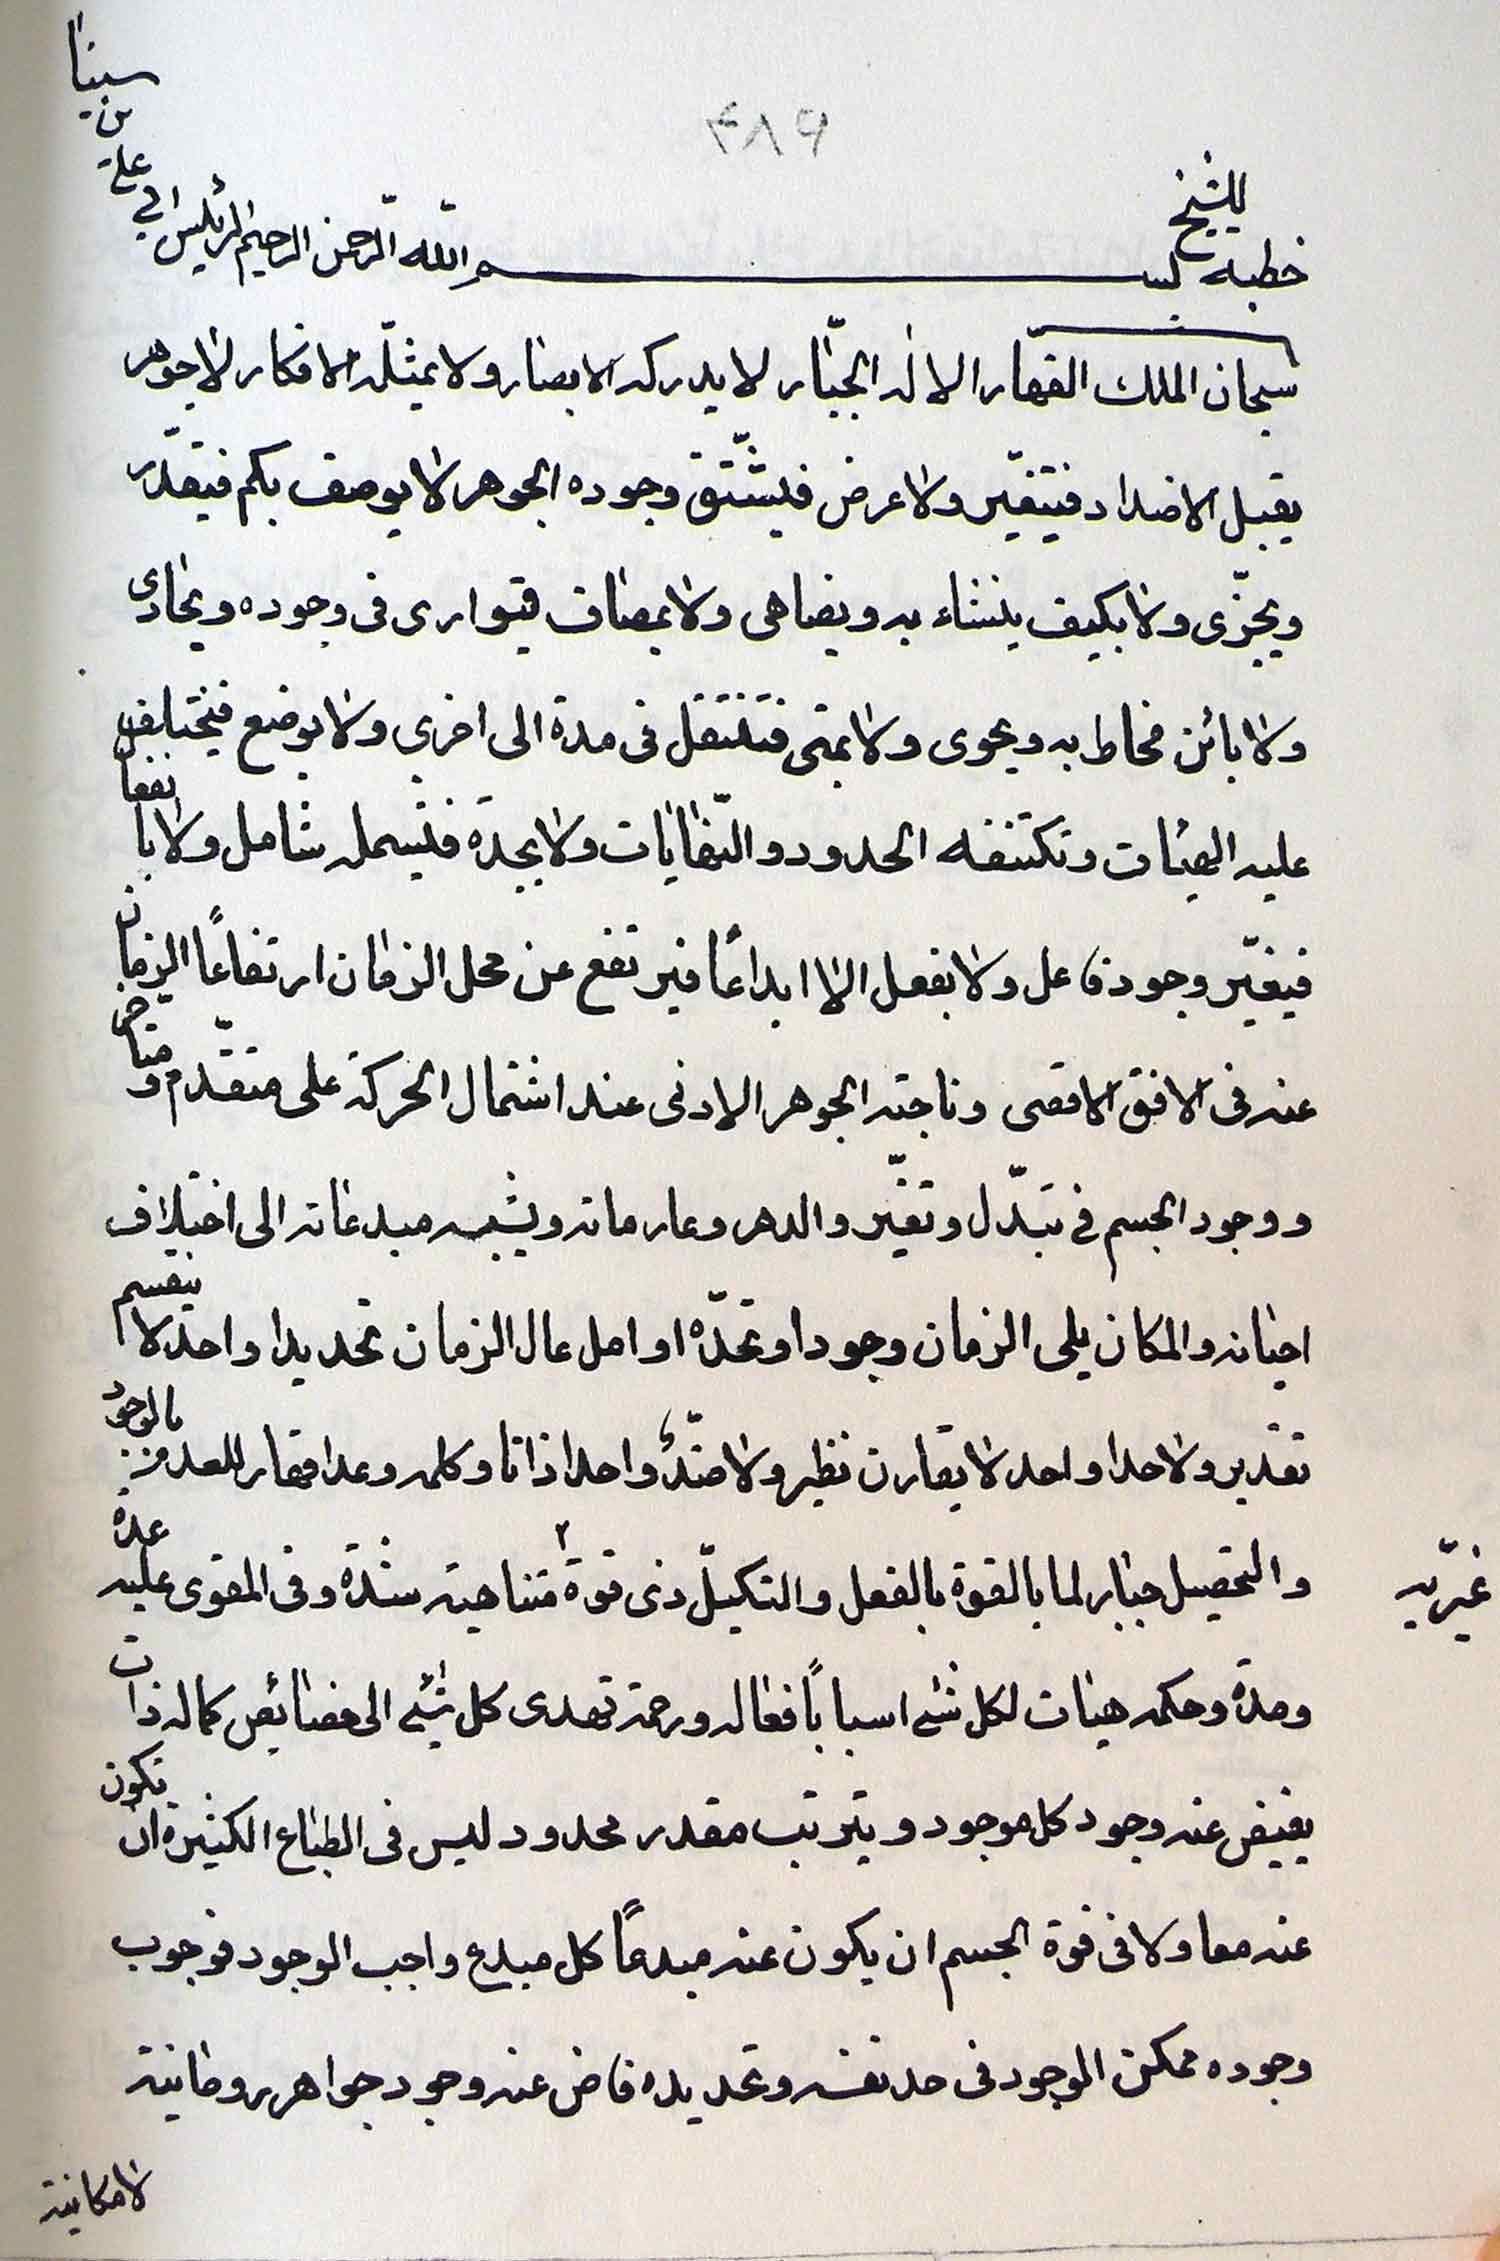 ۴۸۶
خطبه للشيخ بسم الله الرحمن الرحيم الرئيس ابي علي بن سينا
سبحان الملك القهّار الاله الجبّار لا يدركه الابصار ولا يمثّله الافكار لا جوهر
يقبل الاضداد فيتغيّر ولا عرض فيستّق وجوده الجوهر لا يوصف بكم فيقدّر
ويجزّى ولا بكيف ينشاء به ويضاهى ولا بمضاف فيوارى فى وجوده ويحاذى
ولا باين فحاط به ويحوى ولا بمتى فتنتقل فى مدة الى اخرى ولا بوضع فيختلف
عليه الهيئات وتكتنفه الحدود والنّهايات ولا بجدة فيشمله شامل ولا بانفعال
فيغيّر وجوده فاعل ولا بفعل الا ابداعًا فيرتفع عن محل الزمان ارتفاعًا الزمان
عنه فى الافق الاقصى وناحيته الجوهر الادنى عند اشتمال الحركة على متقدّم ومتاخر
ووجود الجسم فى تبدّل وتغيّر والدهر وعاء زمانه ويشبه مبدعاته الى اختلاف
احيانه والمكان يلى الزمان وجودا وتحدّه اوامل عال الزمان تحديدا واحد لا ينقسم
تقدير ولا حدا واحد لا يقارن نظير ولا ضدّ واحدا ذاتا وكلمه وعدا قهار للعدم بالوجود
والتحصيل جبار لما بالقوة بالفعل والتكيل ذى قوة ۲ متناهية شدة وفى المقوى عليه عدة
غيريه
ومدة وحكمه هيات لكل شئ اسبابًا فعاله ورحمة تهدى كل شئ الى خصايص كماله ذات
يفيض عنه وجود كل موجود ويترتب مقدر محدود ليس فى الطباع الكثيرة ان تكون
عنه معا ولا فى قوة الجسم ان يكون عنه مبدعًا كل مبدع واجب الوجود فوجوب
وجوده ممكن الموجود فى حد نفسه وتحديده فاض عنه وجود جواهر روحانية
لا مكانية